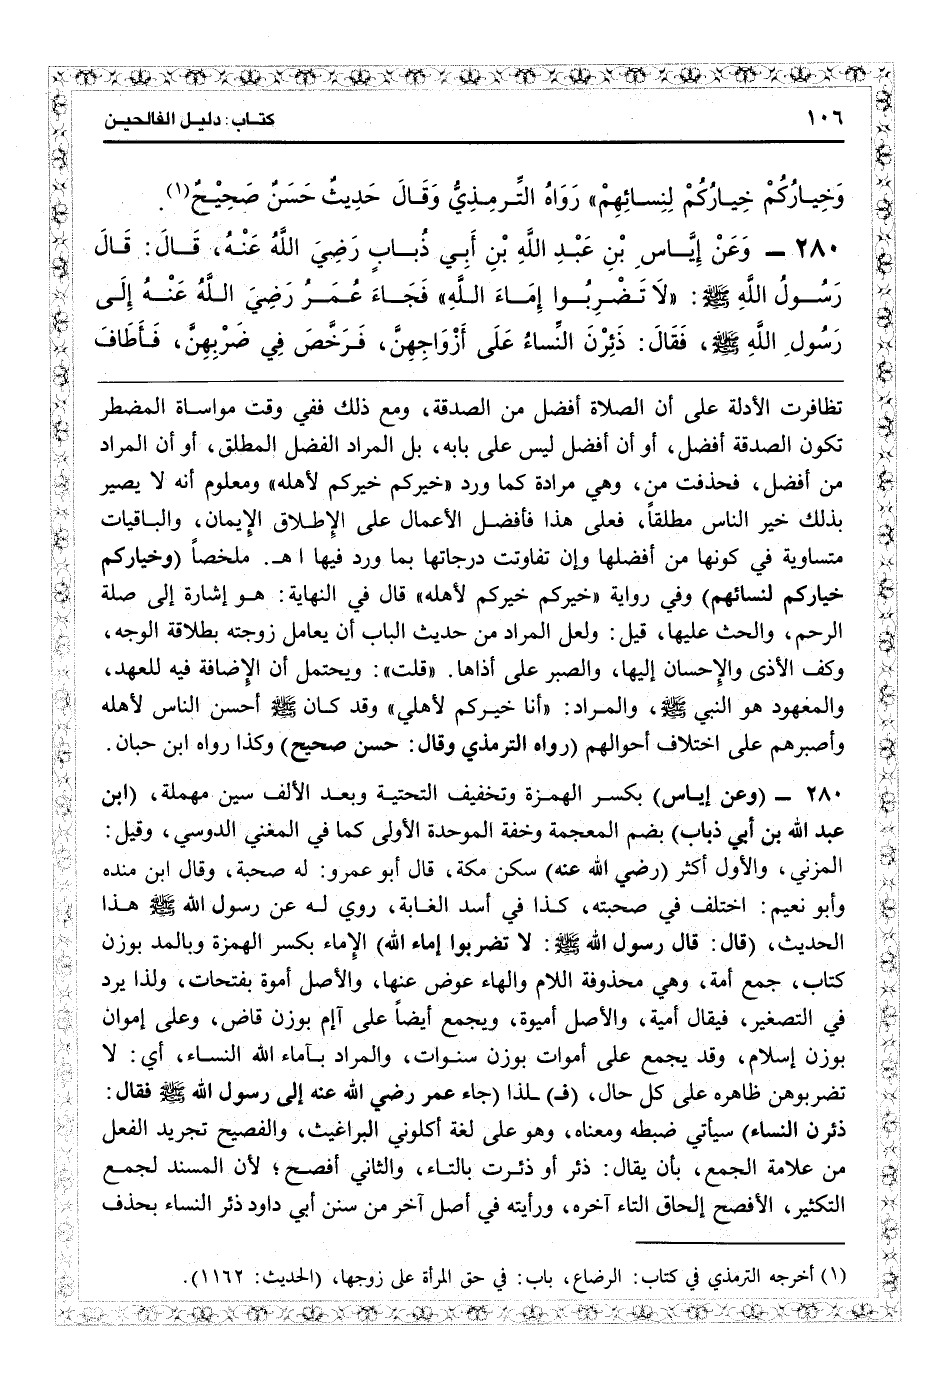 ١٠٦
كتاب: دليل الفالحين
وَخِيارُكُمْ خِيارُكُمْ لِنِسائِهِمْ» رَوَاهُ التِّرمِذِيُّ وَقَالَ حَدِيثٌ حَسَنٌ صَحِيْحٌ(١).
٢٨٠ ـ وَعَنْ إِيَّاسِ بْنِ عَبْدِ اللَّهِ بْنِ أَبِي ذُبابٍ رَضِيَ اللَّهُ عَنْهُ، قَالَ: قَالَ
رَسُولُ اللَّهِ ﷺ: «لَا تَضْرِبُوا إِمَاءَ اللَّهِ» فَجَاءَ عُمَرُ رَضِيَ اللَّهُ عَنْهُ إِلَى
رَسُولِ اللَّهِ ﷺ، فَقَالَ: ذَئِرْنَ النِّساءُ عَلَى أَزْوَاجِهِنَّ، فَرَخَّصَ فِي ضَرْبِهِنَّ، فَأَطَافَ
تظافرت الأدلة على أن الصلاة أفضل من الصدقة، ومع ذلك ففي وقت مواساة المضطر
تكون الصدقة أفضل، أو أن أفضل ليس على بابه، بل المراد الفضل المطلق، أو أن المراد
من أفضل، فحذفت من، وهي مرادة كما ورد «خيركم خيركم لأهله» ومعلوم أنه لا يصير
بذلك خير الناس مطلقاً، فعلى هذا فأفضل الأعمال على الإِطلاق الإِيمان، والباقيات
متساوية في كونها من أفضلها وإن تفاوتت درجاتها بما ورد فيها ا هـ. ملخصاً (وخياركم
خياركم لنسائهم) وفي رواية «خيركم خيركم لأهله» قال في النهاية: هو إشارة إلى صلة
الرحم، والحث عليها، قيل: ولعل المراد من حديث الباب أن يعامل زوجته بطلاقة الوجه،
وكف الأذى والإِحسان إليها، والصبر على أذاها. «قلت»: ويحتمل أن الإِضافة فيه للعهد،
والمعهود هو النبي ﷺ، والمراد: «أنا خيركم لأهلي» وقد كان ﷺ أحسن الناس لأهله
وأصبرهم على اختلاف أحوالهم (رواه الترمذي وقال: حسن صحيح) وكذا رواه ابن حبان.
٢٨٠ ـ (وعن إياس) بكسر الهمزة وتخفيف التحتية وبعد الألف سين مهملة، (ابن
عبد الله بن أبي ذباب) بضم المعجمة وخفة الموحدة الأولى كما في المغني الدوسي، وقيل:
المزني، والأول أكثر (رضي الله عنه) سكن مكة، قال أبو عمرو: له صحبة، وقال ابن منده
وأبو نعيم: اختلف في صحبته، كذا في أسد الغابة، روي له عن رسول الله ﷺ هذا
الحديث، (قال: قال رسول الله ﷺ: لا تضربوا إماء الله) الإِماء بكسر الهمزة وبالمد بوزن
كتاب، جمع أمة، وهي محذوفة اللام والهاء عوض عنها، والأصل أموة بفتحات، ولذا يرد
في التصغير، فيقال أمية، والأصل أميوة، ويجمع أيضاً على آإم بوزن قاض، وعلى إموان
بوزن إسلام، وقد يجمع على أموات بوزن سنوات، والمراد بآماء الله النساء، أي: لا
تضربوهن ظاهره على كل حال، (فـ) ـلذا (جاء عمر رضي الله عنه إلى رسول الله ﷺ فقال:
ذئرن النساء) سيأتي ضبطه ومعناه، وهو على لغة أكلوني البراغيث، والفصيح تجريد الفعل
من علامة الجمع، بأن يقال: ذئر أو ذئرت بالتاء، والثاني أفصح؛ لأن المسند لجمع
التكثير، الأفصح إلحاق التاء آخره، ورأيته في أصل آخر من سنن أبي داود ذئر النساء بحذف
(١) أخرجه الترمذي في كتاب: الرضاع، باب: في حق المرأة على زوجها، (الحديث: ١١٦٢).